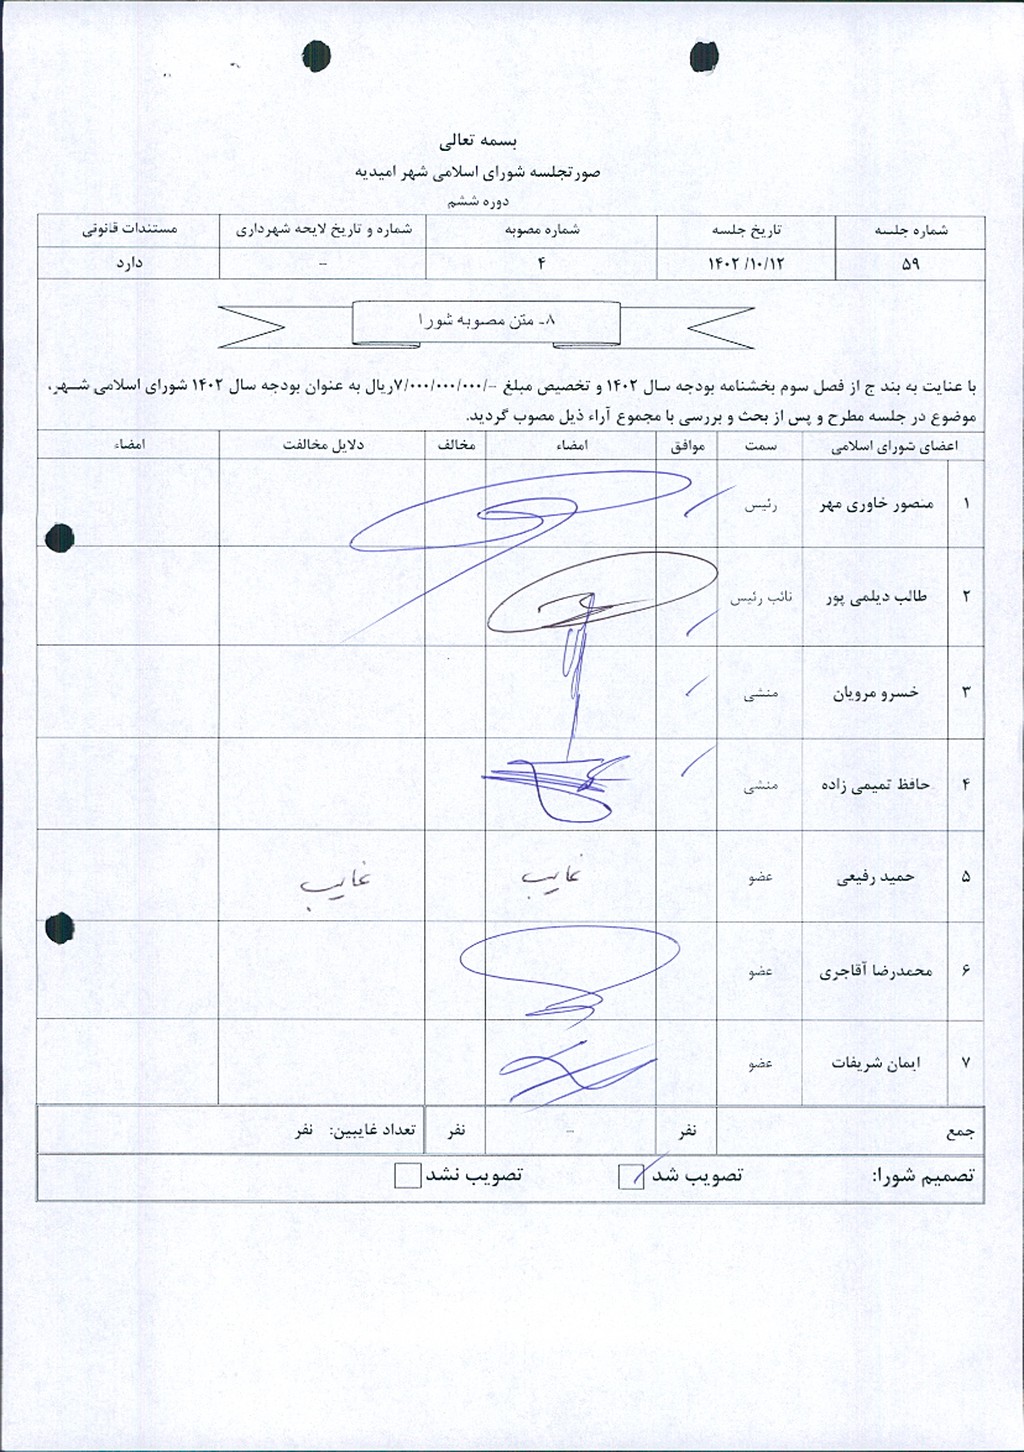 بسمه تعالی
صورتجلسه شورای اسلامی شهر امیدیه
دوره ششم
شماره جلسه تاریخ جلسه شماره مصوبه شماره و تاریخ لایحه شهرداری مستندات قانونی
۵۹ ۱۴۰۲/۱۰/۱۲ ۴ -- دارد
۸- متن مصوبه شورا
با عنایت به بند ج از فصل سوم بخشنامه بودجه سال ۱۴۰۲ و تخصیص مبلغ --/۷/۰۰۰/۰۰۰/۰۰۰ریال به عنوان بودجه سال ۱۴۰۲ شورای اسلامی شهر،
موضوع در جلسه مطرح و پس از بحث و بررسی با مجموع آراء ذیل مصوب گردید.
اعضای شورای اسلامی سمت موافق امضاء مخالف دلایل مخالفت امضاء
۱ منصور خاوری مهر رئیس
۲ طالب دیلمی پور نائب رئیس
۳ خسرو مرویان منشی
۴ حافظ تمیمی زاده منشی
۵ حمید رفیعی عضو غایب غایب
۶ محمدرضا آقاجری عضو
۷ ایمان شریفات عضو
جمع نفر -- نفر تعداد غایبین: نفر
تصمیم شورا: تصویب شد تصویب نشد